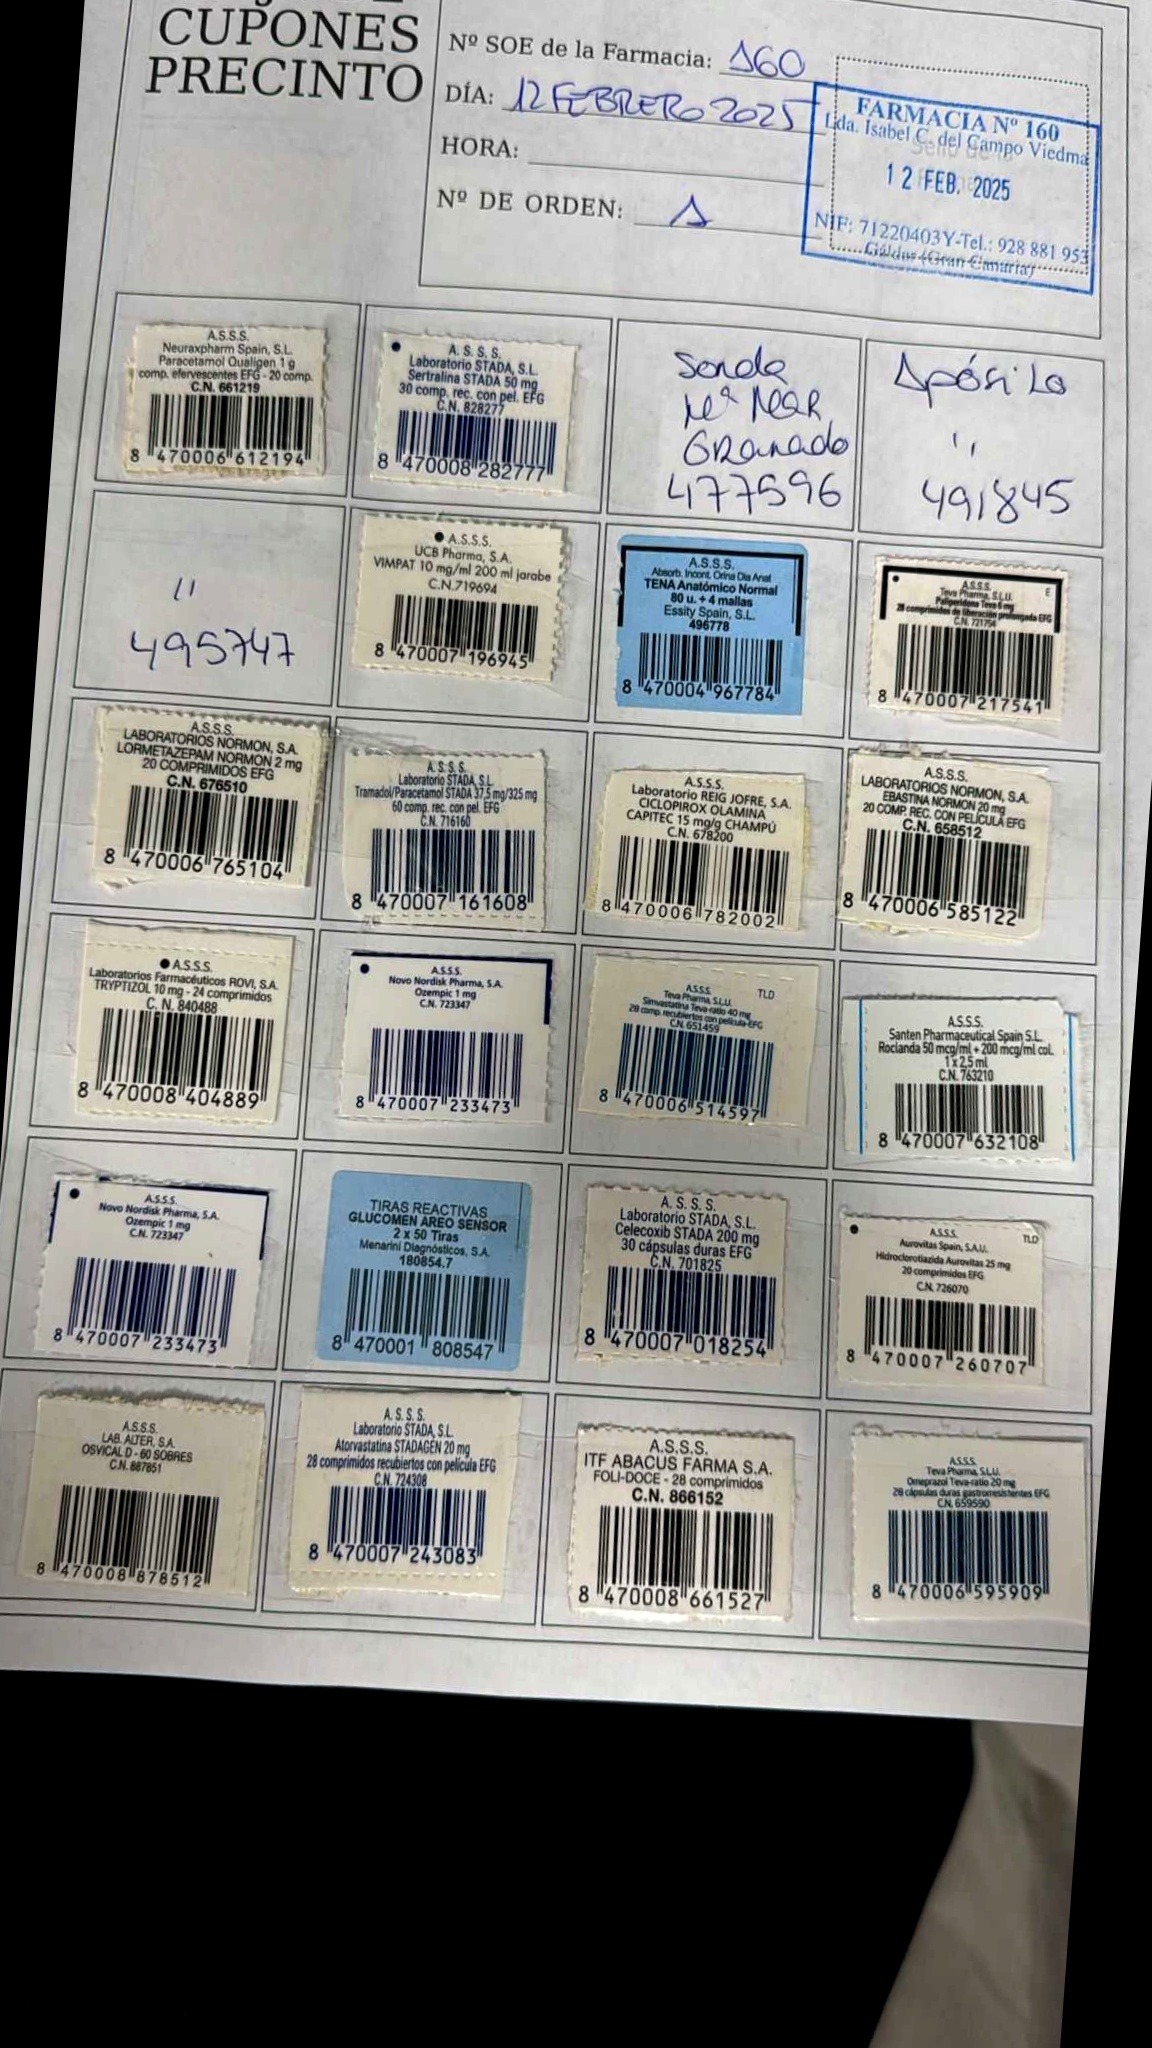 CUPONES
PRECINTO
Nº SOE de la Farmacia: 160
DÍA: 12 FEBRERO 2025
HORA:
Nº DE ORDEN: 1
FARMACIA Nº 160
Lda. Isabel C. del Campo Viedma
12 FEB. 2025
NIF: 71220403Y-Tel.: 928 881 953
Gáldar (Gran Canaria)
A.S.S.S.
Neuraxpharm Spain, S.L.
Paracetamol Qualigen 1 g
comp. efervescentes EFG - 20 comp.
C.N. 661219
8 470006 612194
A. S. S. S.
Laboratorio STADA, S.L.
Sertralina STADA 50 mg
30 comp. rec. con pel. EFG
C.N. 828277
8 470008 282777
Sonda
Mª Mar
Granado
477596
Apósito
"
491845
"
495747
A.S.S.S.
UCB Pharma, S.A.
VIMPAT 10 mg/ml 200 ml jarabe
C.N.719694
8 470007 196945
A.S.S.S.
Absorb. Incont. Orina Dia Anat
TENA Anatómico Normal
80 u. + 4 mallas
Essity Spain, S.L.
496778
8 470004 967784
A.S.S.S. E
Teva Pharma, S.L.U.
Paliperidona Teva 6 mg
28 comprimidos de liberación prolongada EFG
C.N. 721754
8 470007 217541
A.S.S.S.
LABORATORIOS NORMON, S.A.
LORMETAZEPAM NORMON 2 mg
20 COMPRIMIDOS EFG
C.N. 676510
8 470006 765104
A.S.S.S.
Laboratorio STADA, S.L.
Tramadol/Paracetamol STADA 37,5 mg/325 mg
60 comp. rec. con pel. EFG
C.N. 716160
8 470007 161608
A.S.S.S.
Laboratorio REIG JOFRE, S.A.
CICLOPIROX OLAMINA
CAPITEC 15 mg/g CHAMPÚ
C.N. 678200
8 470006 782002
A.S.S.S.
LABORATORIOS NORMON, S.A.
EBASTINA NORMON 20 mg
20 COMP. REC. CON PELÍCULA EFG
C.N. 658512
8 470006 585122
A.S.S.S.
Laboratorios Farmacéuticos ROVI, S.A.
TRYPTIZOL 10 mg - 24 comprimidos
C. N. 840488
8 470008 404889
A.S.S.S.
Novo Nordisk Pharma, S.A.
Ozempic 1 mg
C.N. 723347
8 470007 233473
A.S.S.S. TLD
Teva Pharma, S.L.U.
Simvastatina Teva-ratio 40 mg
28 comp. recubiertos con película-EFG
C.N. 651459
8 470006 514597
A.S.S.S.
Santen Pharmaceutical Spain S.L.
Roclanda 50 mcg/ml + 200 mcg/ml col.
1 x 2,5 ml
C.N. 763210
8 470007 632108
A.S.S.S.
Novo Nordisk Pharma, S.A.
Ozempic 1 mg
C.N. 723347
8 470007 233473
TIRAS REACTIVAS
GLUCOMEN AREO SENSOR
2 x 50 Tiras
Menarini Diagnósticos, S.A.
180854.7
8 470001 808547
A. S. S. S.
Laboratorio STADA, S.L.
Celecoxib STADA 200 mg
30 cápsulas duras EFG
C.N. 701825
8 470007 018254
A.S.S.S. TLD
Aurovitas Spain, S.A.U.
Hidroclorotiazida Aurovitas 25 mg
20 comprimidos EFG
C.N. 726070
8 470007 260707
A.S.S.S.
LAB. ALTER, S.A.
OSVICAL D - 60 SOBRES
C.N. 887851
8 470008 878512
A. S. S. S.
Laboratorio STADA, S.L.
Atorvastatina STADAGEN 20 mg
28 comprimidos recubiertos con película EFG
C.N. 724308
8 470007 243083
A.S.S.S.
ITF ABACUS FARMA S.A.
FOLI-DOCE - 28 comprimidos
C.N. 866152
8 470008 661527
A.S.S.S.
Teva Pharma, S.L.U.
Omeprazol Teva-ratio 20 mg
28 cápsulas duras gastrorresistentes EFG
C.N. 659590
8 470006 595909